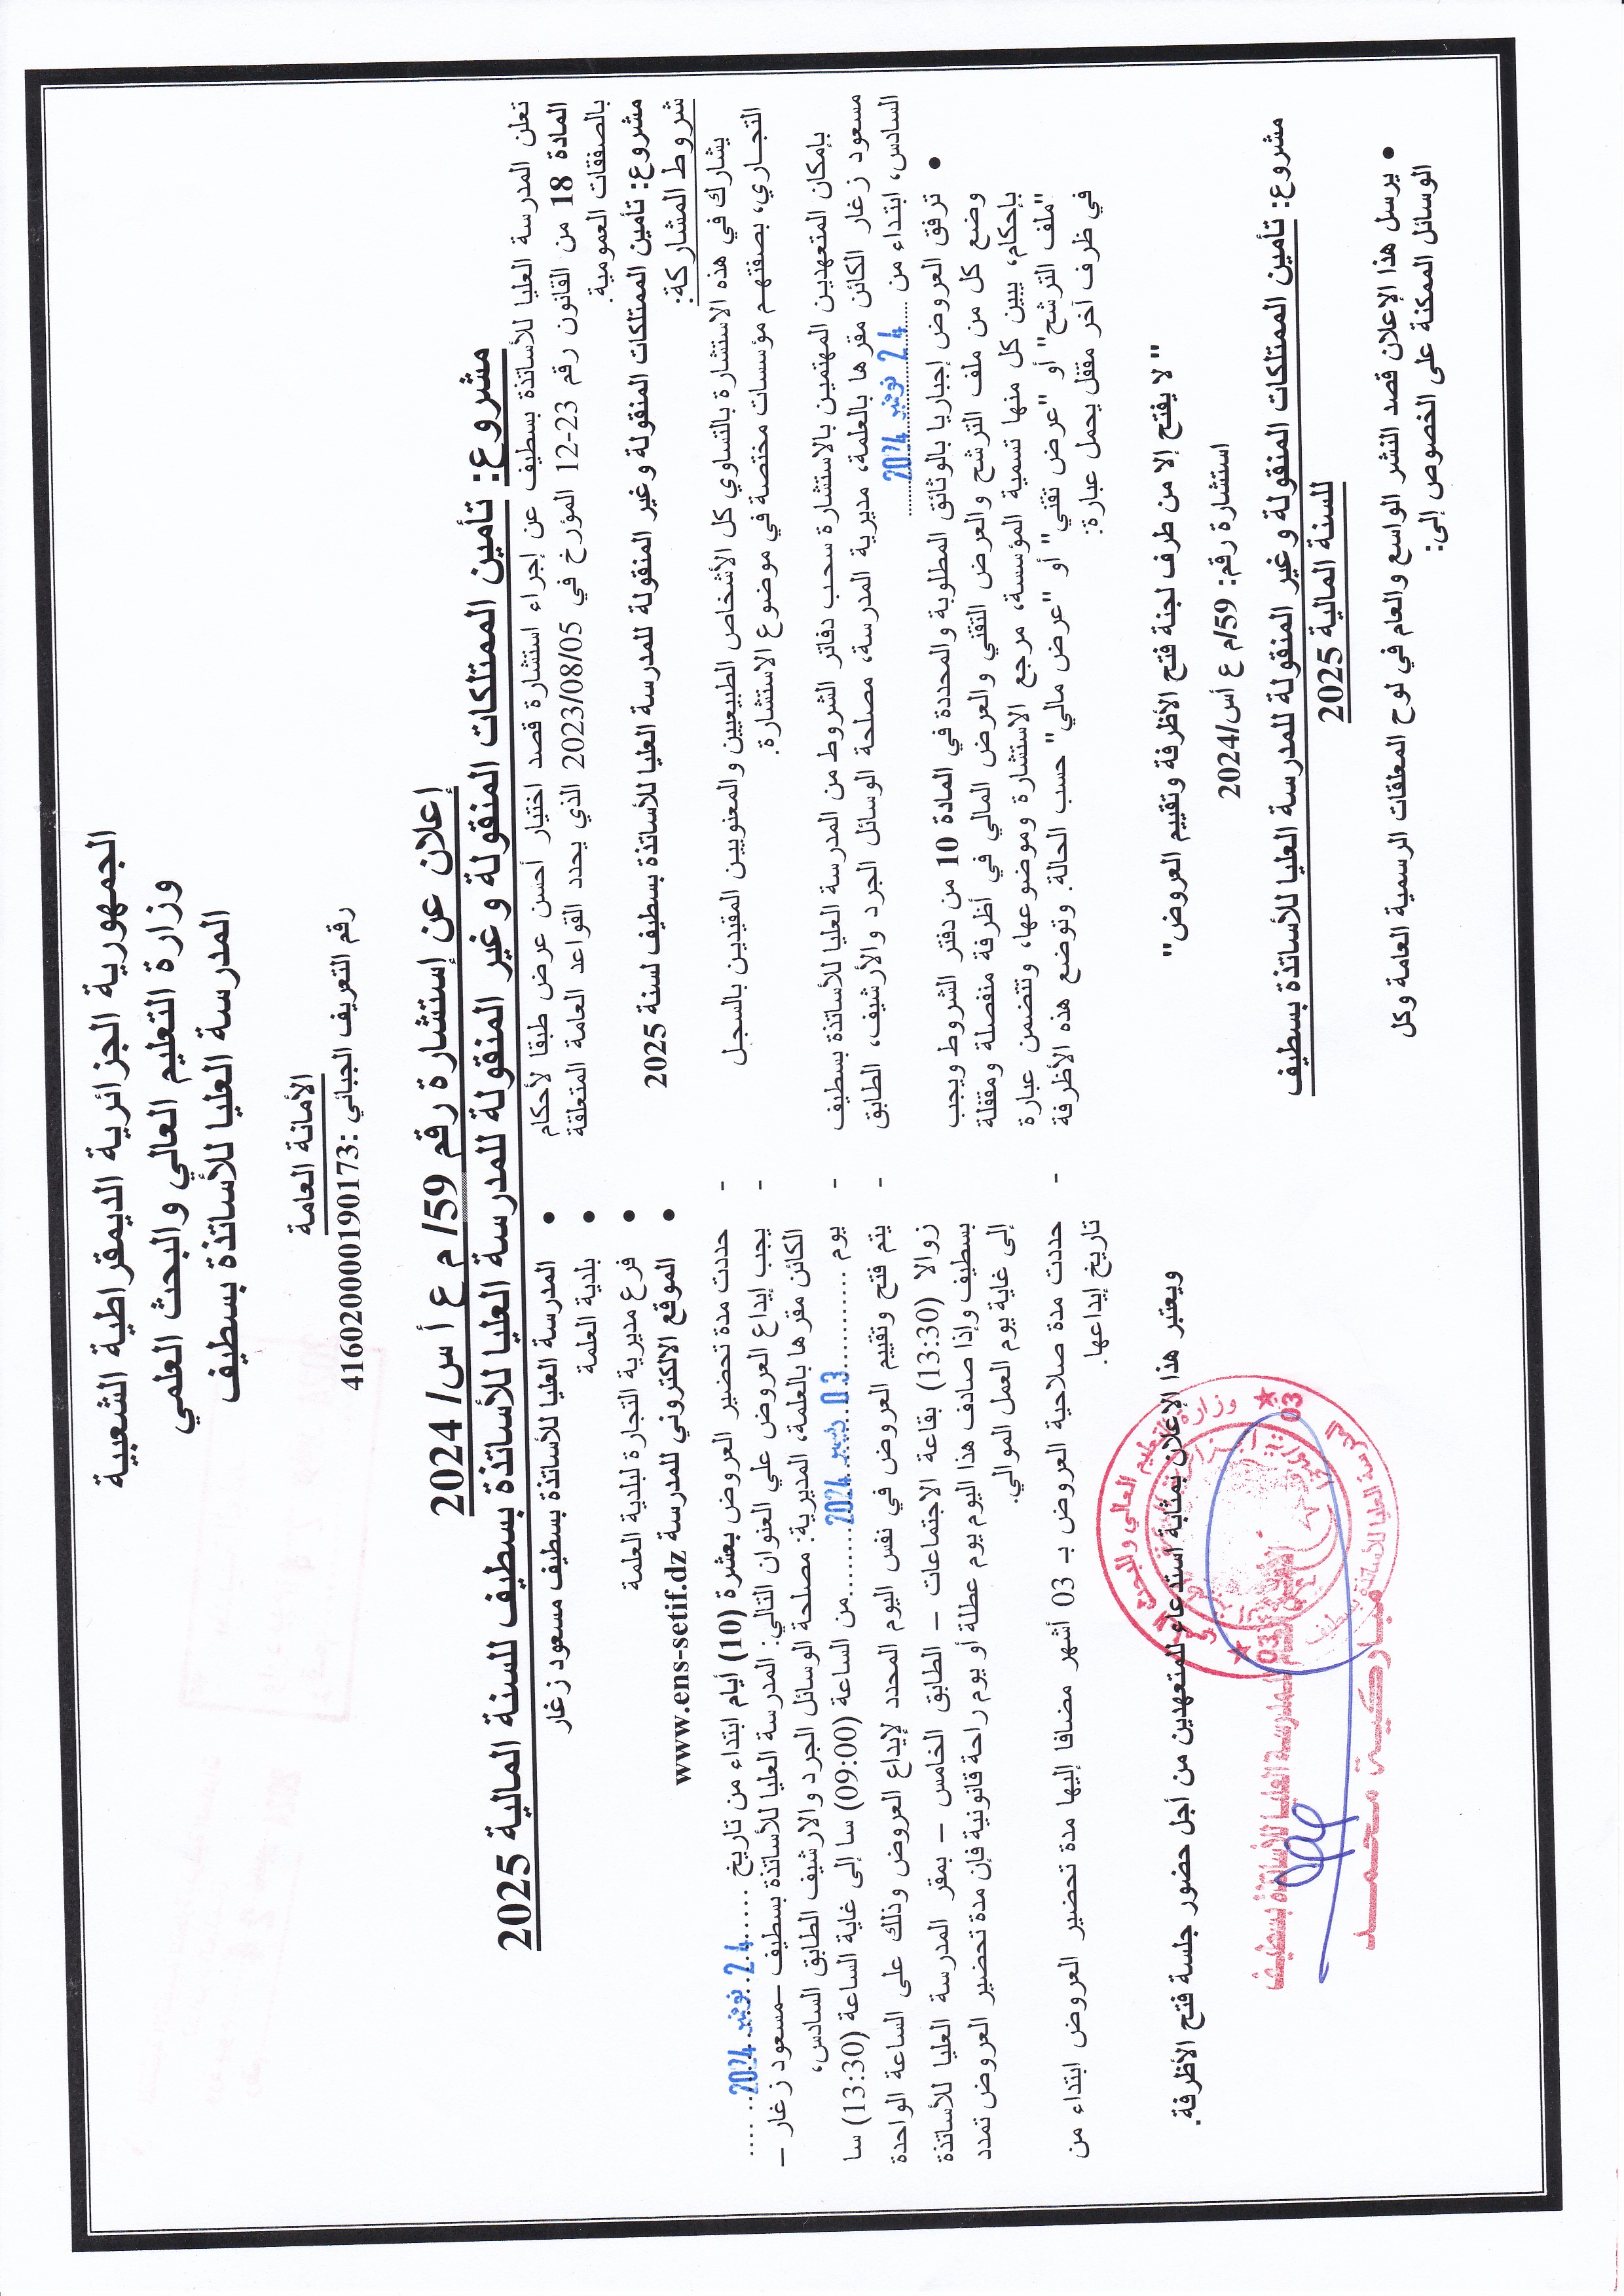 الجمهورية الجزائرية الديمقراطية الشعبية
وزارة التعليم العالي والبحث العلمي
المدرسة العليا للأساتذة بسطيف
الأمانة العامة
رقم التعريف الجبائي :416020000190173
إعلان عن إستشارة رقم 59/ م ع أ س/ 2024
مشروع: تأمين الممتلكات المنقولة و غير المنقولة للمدرسة العليا للأساتذة بسطيف للسنة المالية 2025
تعلن المدرسة العليا للأساتذة بسطيف عن إجراء استشارة قصد اختيار أحسن عرض طبقا لأحكام
المادة 18 من القانون رقم 23-12 المؤرخ في 2023/08/05 الذي يحدد القواعد العامة المتعلقة
بالصفقات العمومية.
مشروع: تأمين الممتلكات المنقولة و غير المنقولة للمدرسة العليا للأساتذة بسطيف لسنة 2025
شروط المشاركة:
يشارك في هذه الاستشارة بالتساوي كل الأشخاص الطبيعيين والمعنويين المقيدين بالسجل
التجاري، بصفتهم مؤسسات مختصة في موضوع الاستشارة.
بإمكان المتعهدين المهتمين بالاستشارة سحب دفاتر الشروط من المدرسة العليا للأساتذة بسطيف
مسعود زغار الكائن مقرها بالعلمة، مديرية المدرسة، مصلحة الوسائل الجرد والأرشيف، الطابق
السادس، ابتداء من 24 نوفمبر 2024
• ترفق العروض إجباريا بالوثائق المطلوبة والمحددة في المادة 10 من دفتر الشروط ويجب
وضع كل من ملف الترشح والعرض التقني والعرض المالي في أظرفة منفصلة ومقفلة
بإحكام، يبين كل منها تسمية المؤسسة، مرجع الاستشارة وموضوعها، وتتضمن عبارة
"ملف الترشح" أو "عرض تقني" أو "عرض مالي" حسب الحالة. وتوضع هذه الأظرفة
في ظرف آخر مقفل يحمل عبارة:
" لا يفتح إلا من طرف لجنة فتح الأظرفة وتقييم العروض"
استشارة رقم: 59/م ع أس/2024
مشروع: تأمين الممتلكات المنقولة و غير المنقولة للمدرسة العليا للأساتذة بسطيف
للسنة المالية 2025
• يرسل هذا الإعلان قصد النشر الواسع والعام في لوح المعلقات الرسمية العامة وكل
الوسائل الممكنة على الخصوص إلى:
• المدرسة العليا للأساتذة بسطيف مسعود زغار
• بلدية العلمة
• فرع مديرية التجارة لبلدية العلمة
• الموقع الالكتروني للمدرسة www.ens-setif.dz
- حددت مدة تحضير العروض بعشرة (10) أيام ابتداء من تاريخ 24 نوفمبر 2024
- يجب إيداع العروض علي العنوان التالي: المدرسة العليا للأساتذة بسطيف –مسعود زغار –
الكائن مقرها بالعلمة، المديرية: مصلحة الوسائل الجرد والارشيف الطابق السادس،
- يوم 03 ديسمبر 2024 من الساعة (09:00) سا إلى غاية الساعة (13:30) سا
- يتم فتح وتقييم العروض في نفس اليوم المحدد لإيداع العروض وذلك على الساعة الواحدة
زوالا (13:30) بقاعة الاجتماعات – الطابق الخامس – بمقر المدرسة العليا للأساتذة
بسطيف وإذا صادف هذا اليوم يوم عطلة أو يوم راحة قانونية فإن مدة تحضير العروض تمدد
إلى غاية يوم العمل الموالي.
- حددت مدة صلاحية العروض بـ 03 أشهر مضافا إليها مدة تحضير العروض ابتداء من
تاريخ إيداعها.
ويعتبر هذا الإعلان بمثابة استدعاء للمتعهدين من أجل حضور جلسة فتح الأظرفة.
03
للمدرسة العليا للأساتذة بسطيف
مباركية محمد